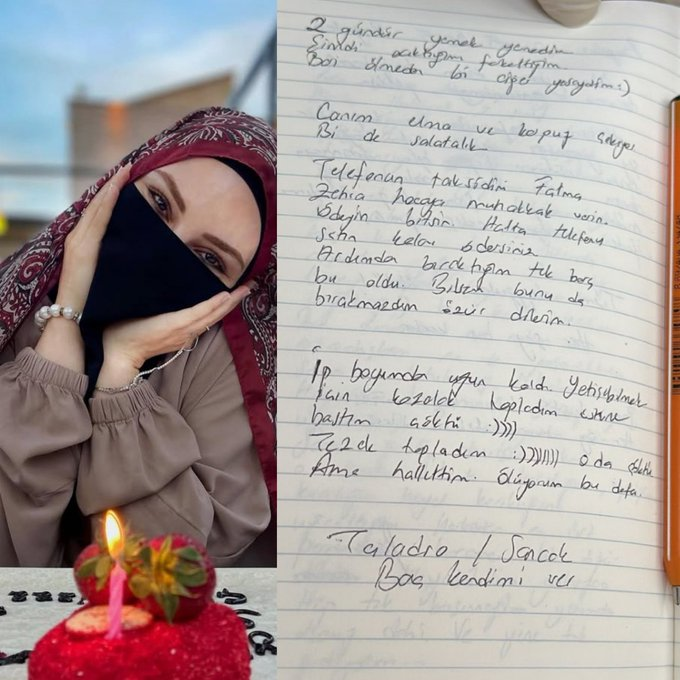 2 gündür yemek yemedim
Şimdi acıktığım farkettim
Bari ölmeden bi çiğ yeseydim :)
Canım elma ve karpuz çekiyor
Bi de salatalık
Telefonun taksidini Fatma
Zehra hocaya muhakkak verin.
Ödeyin bitsin. Hatta telefonu
satın kalanı ödersiniz
Ardımda bıraktığım tek borç
bu oldu. Bilsem bunu da
bırakmazdım özür dilerim.
İp boyumdan uzun kaldı. Yetişebilmek
için kozalak topladım üstüne
bastım çöktü :))))
Tezek topladım :))))))) o da çöktü
Ama hallettim. Ölüyorum bu defa.
Taladro / Sancak
Boş kendimi ver